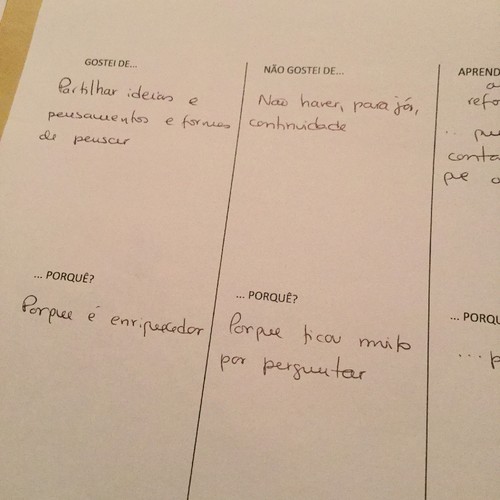 GOSTEI DE...
Partilhar ideias e
pensamentos e formas
de pensar
... PORQUÊ?
Porque é enriquecedor
NÃO GOSTEI DE...
Não haver, para já,
continuidade
... PORQUÊ?
Porque ficou muito
por perguntar
APREND
a
refo
conta
que a
... PORQU
... p